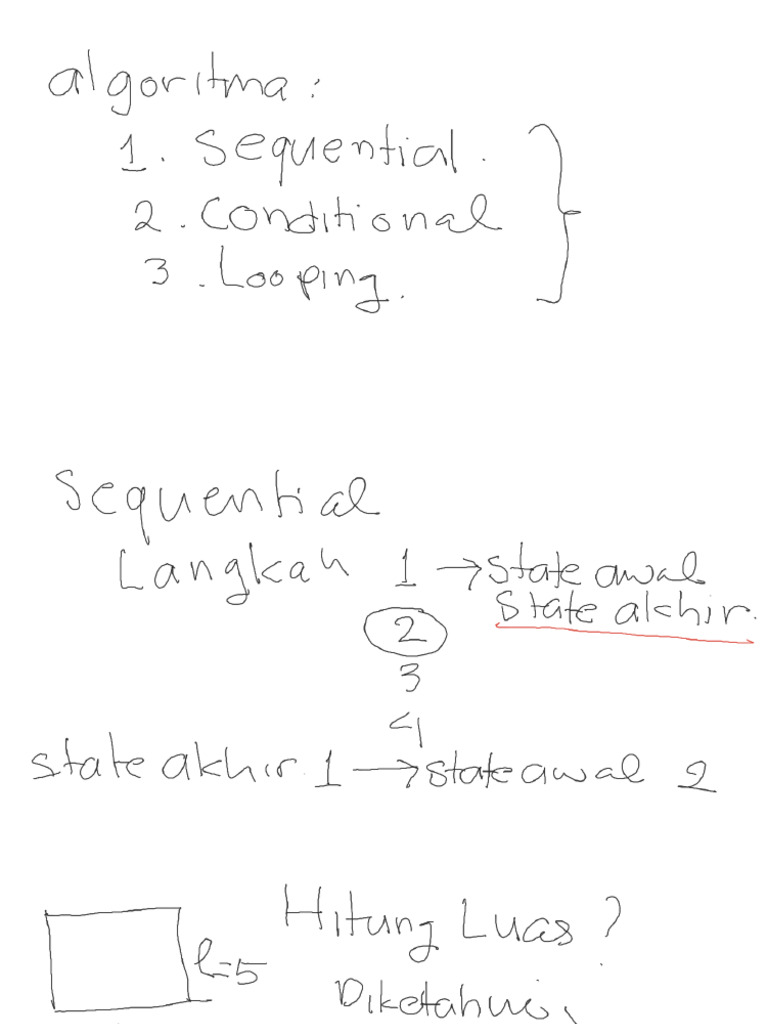 algoritma:
1. Sequential.
2. Conditional
3. Looping.
Sequential
Langkah 1 → state awal
State akhir.
2
3
4
state akhir 1 → state awal 2
Hitung Luas?
l=5
Diketahui: